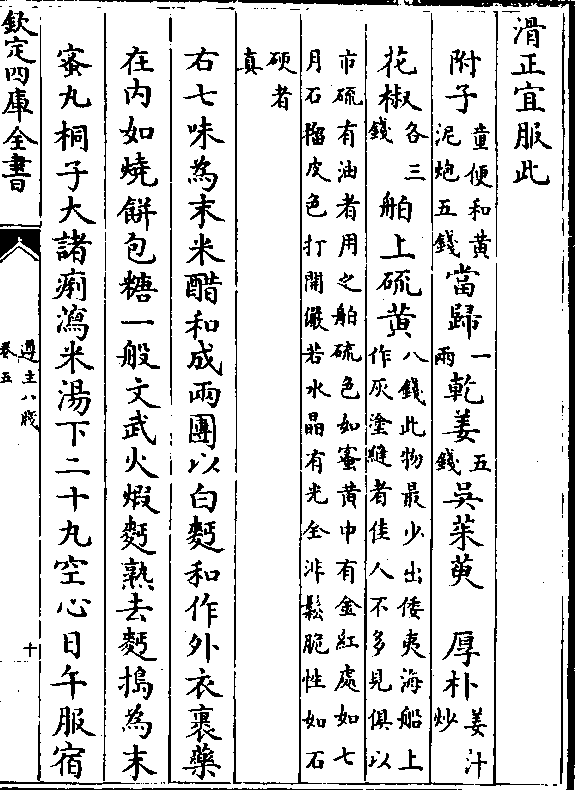 滑正宜服此
附子童便和黄泥炮五錢當歸一兩乾姜五錢吳茱萸 厚朴姜汁炒
花椒各三錢舶上硫黄八錢此物最少出倭夷海船上作灰塗縫者佳人不多見俱以
市硫有油者用之舶硫色如蜜黄中有金紅處如七
月石榴皮色打開儼若水晶有光全非鬆脆性如石
硬者
真
右七味為末米醋和成兩團以白麪和作外衣裹藥
在内如燒餅包糖一般文武火煅麪熟去麪搗為末
蜜丸桐子大諸痢瀉米湯下二十丸空心日午服宿
欽定四庫全書
遵生八牋
卷五
十